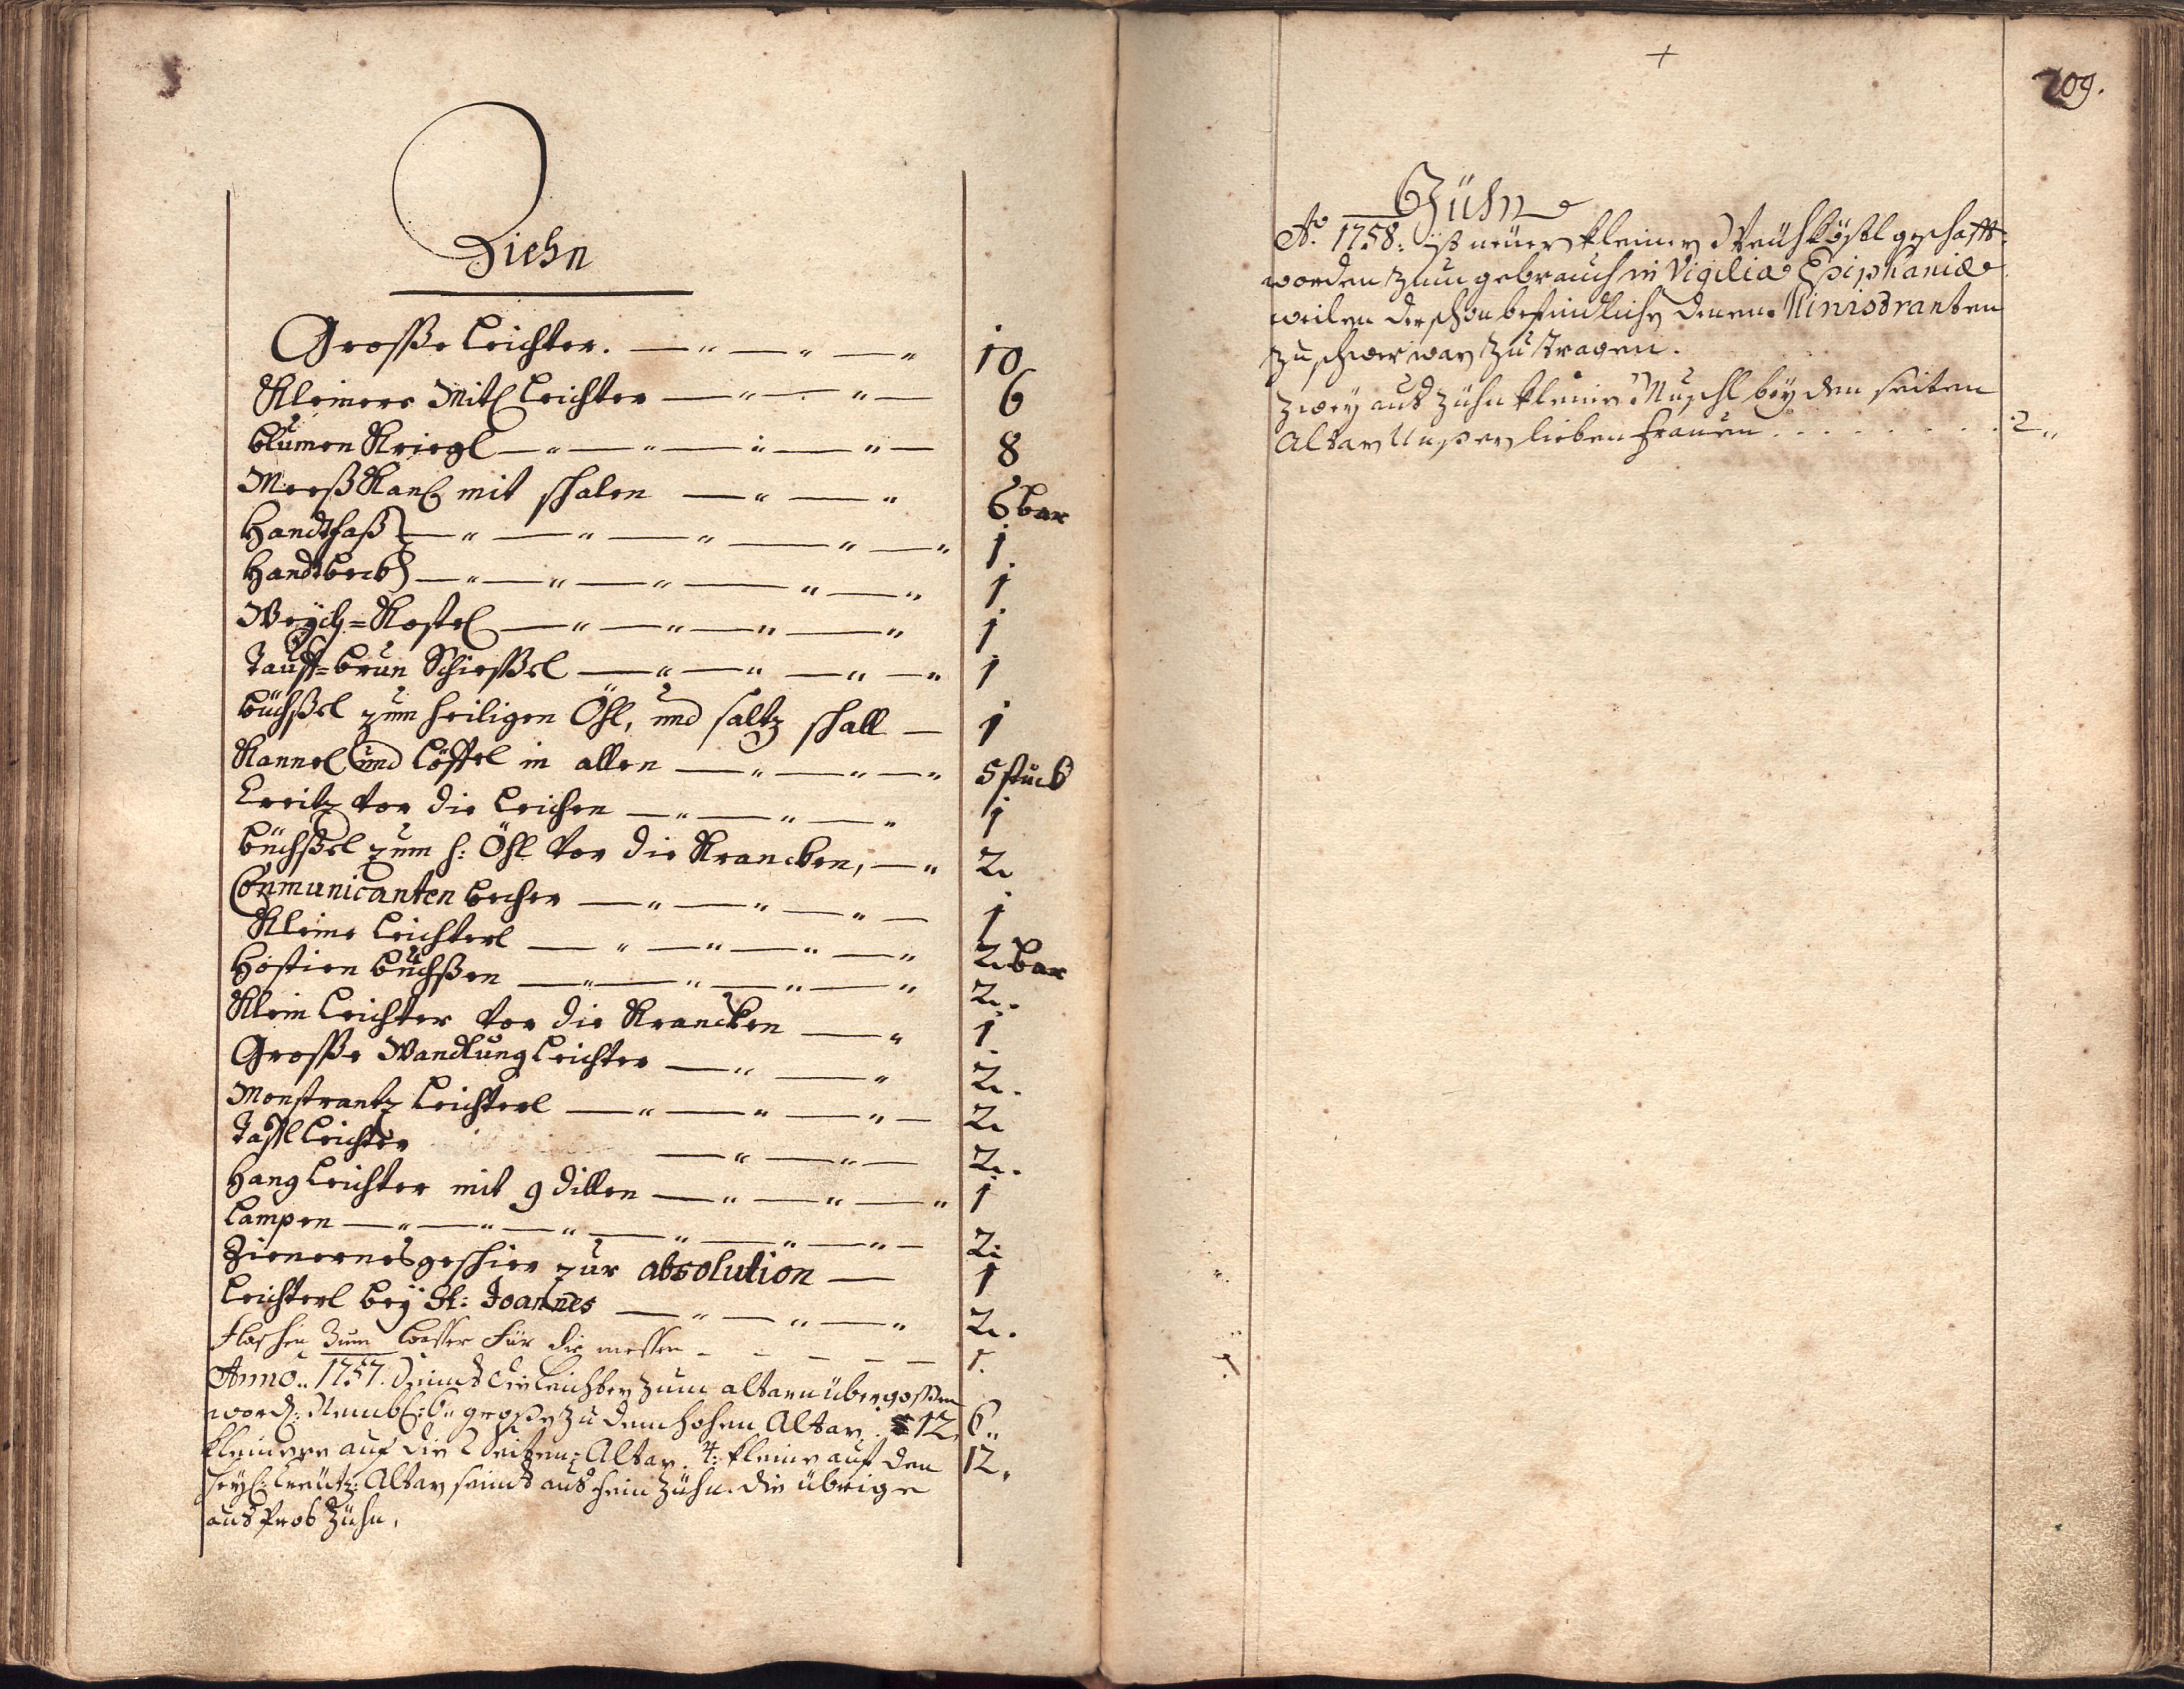 Ziehn
Grosse Leichter. 10
Kleinere Mitl Leichter 6
Blumen Kriegl 8
Mess Kanl mit schalen 6 bar
Handtfaß 1.
Handtbeckh 1
Weych=Kestel 1
Tauff=brun Schiessel 1
Büchssel zum heiligen Öhl, und saltz schall 1
Kannel und Löffel in allen 5 stuck
Creitz vor die Leichen 1
Büchssel zum h: Öhl vor die Krancken, 2
Communicanten becher 1
Kleine Leichterl 2 bar
Hostien büchssen 2.
Klein Leichter vor die Krancken 1
Grosse Wandlung Leichter 2.
Monstrantz Leichterl 2
Taffl Leichter 2.
Hang Leichter mit 9 dillen 1
Lampen 2
Zienernes geschier zur absolution 1
Leichterl bey St: Joannes 2.
Flaschen zum Wasser für die messen 1.
Anno.. 1757. Seind die Leichter zum altaren übergossen
word: Nembl: 6.. grosse zu dem hohen Altar. 12. 6..
kleinere auf die Seiten=Altar. 4: kleine auf den 12.
heyl: Creütz: Altar seind aus fein Zühn. die übrige
aus Prob Zühn.
+
209.
Zühn
Ao. 1758: ist neuer kleiner Weyhkößl geschafft
worden zum gebrauch in Vigilia Epiphaniæ
weilen der schon befindliche denen Ministranten
zu schwer war zu tragen.
Zwey aus Zühn kleine Muschl bey den seiten
Altar Unser lieben Frauen . . . . . . . . 2..